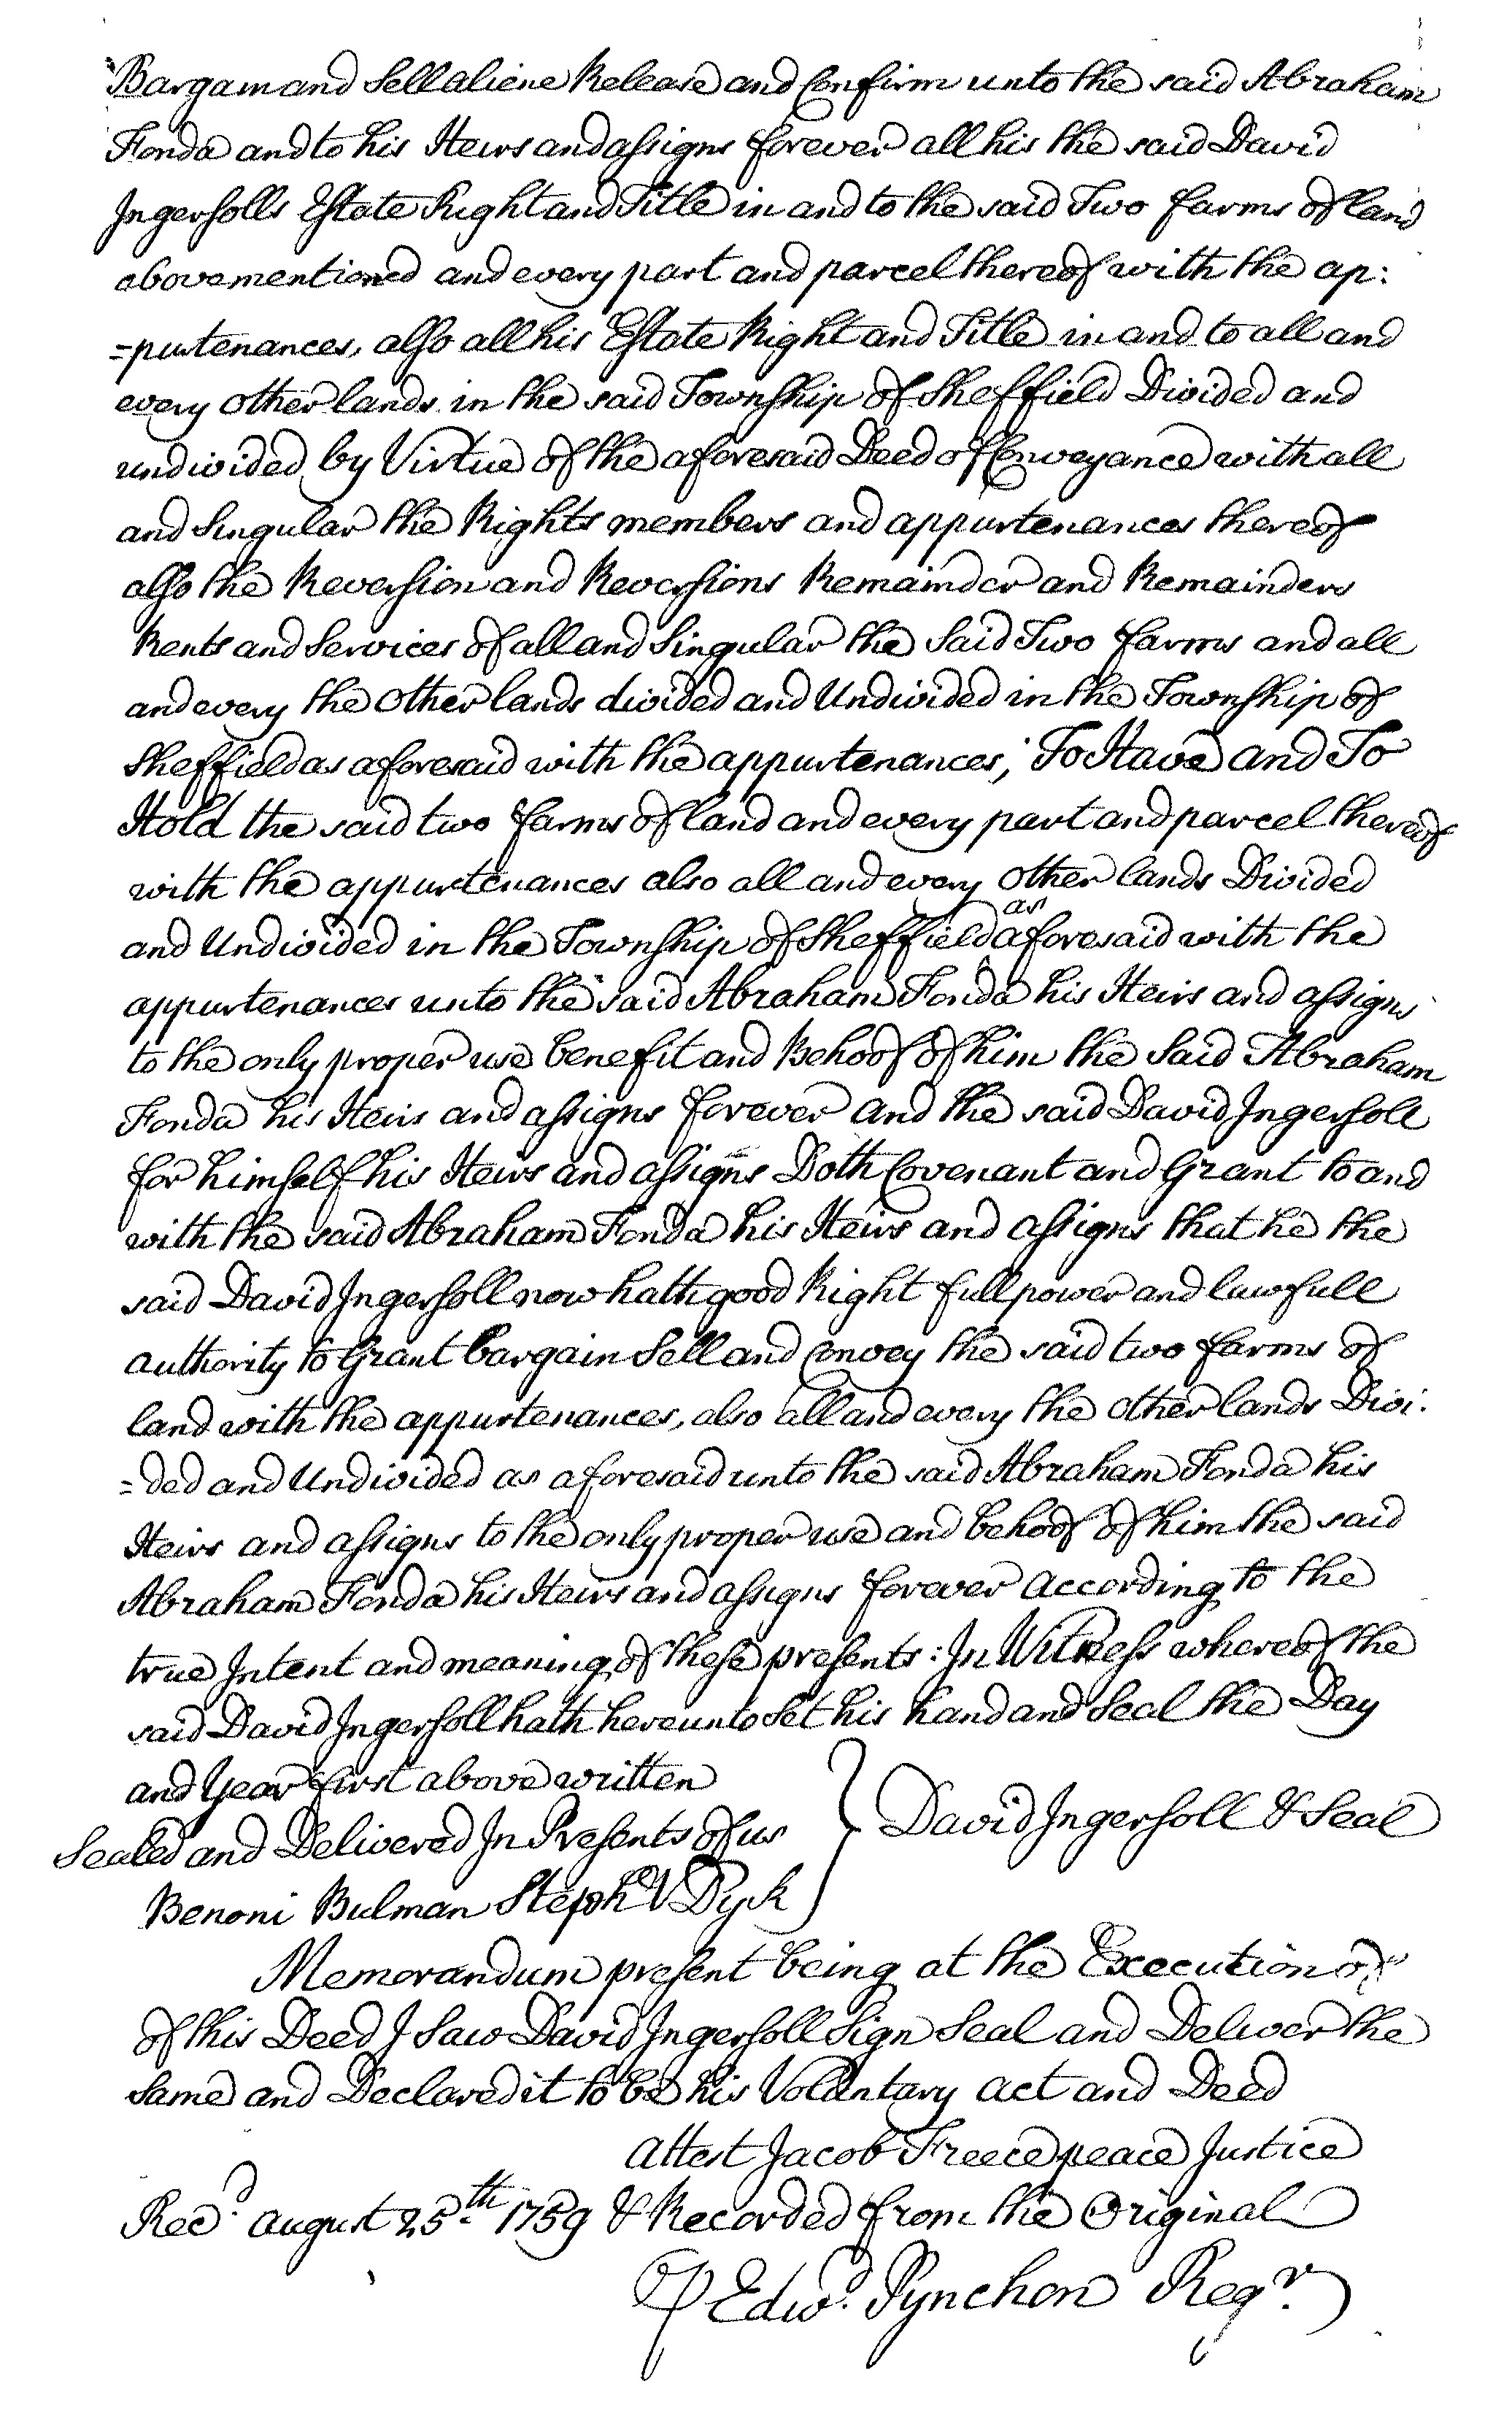 Bargain and Sell aliene Release and Confirm unto the said Abraham
Fonda and to his Heirs and assigns forever all his the said David
Ingersolls Estate Right and Title in and to the said Two farms of land
abovementioned and every part and parcel thereof with the ap:
=purtenances, also all his Estate Right and Title in and to all and
every other lands in the said Township of Sheffield Divided and
undivided by Virtue of the aforesaid Deed of Conveyance with all
and Singular the Rights members and appurtenances thereof
also the Reversion and Reversions Remainder and Remainders
Rents and Services of all and Singular the Said Two farms and all
and every the other lands divided and Undivided in the Township of
Sheffield as aforesaid with the appurtenances; To Have and To
Hold the said two farms of land and every part and parcel thereof
with the appurtenances also all and every other lands Divided
and Undivided in the Township of Sheffield as aforesaid with the
appurtenances unto the said Abraham Fonda his Heirs and assigns
to the only proper use benefit and Behoof of him the Said Abraham
Fonda his Heirs and assigns forever and the said David Ingersoll
for himself his Heirs and assigns Doth Covenant and Grant to and
with the said Abraham Fonda his Heirs and assigns that he the
said David Ingersoll now hath good Right full power and lawfull
authority to Grant bargain Sell and Convey the said two farms of
land with the appurtenances, also all and every the other lands Divi:
=ded and Undivided as aforesaid unto the said Abraham Fonda his
Heirs and assigns to the only proper use and behoof of him the said
Abraham Fonda his Heirs and assigns forever according to the
true Intent and meaning of these presents: In Witness whereof the
said David Ingersoll hath hereunto set his hand and Seal the Day
and Year first above written
Sealed and Delivered In Presents of us } David Ingersoll & Seal
Benoni Bulman Steph V Dyck
Memorandum present being at the Execution of
of this Deed I Saw David Ingersoll Sign Seal and Deliver the
Same and Declared it to be his Voluntary act and Deed
Attest Jacob Freece peace Justice
Recd. August 25th 1759 & Recorded from the Original
P Edwd. Pynchon Regr.